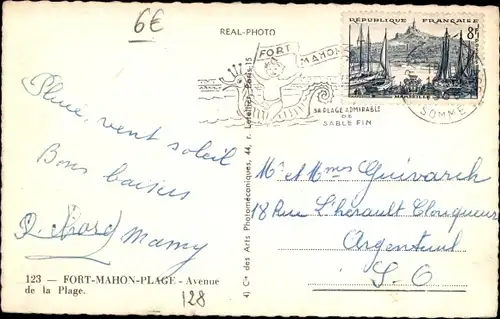 6€
REAL-PHOTO
FORT MAHON
SA PLAGE ADMIRABLE
DE
SABLE FIN
SOMME
RÉPUBLIQUE FRANÇAISE
8F
MARSEILLE
Pluie, vent soleil
Bons baisers
Mamy
Mr et Mme Guivarch
18 Rue L'hérault Clouqueur
Argenteuil
S. O
4) Cie des Arts Photomécaniques, 44, r. Letellier, Paris-15
123 — FORT-MAHON-PLAGE - Avenue
de la Plage.
128